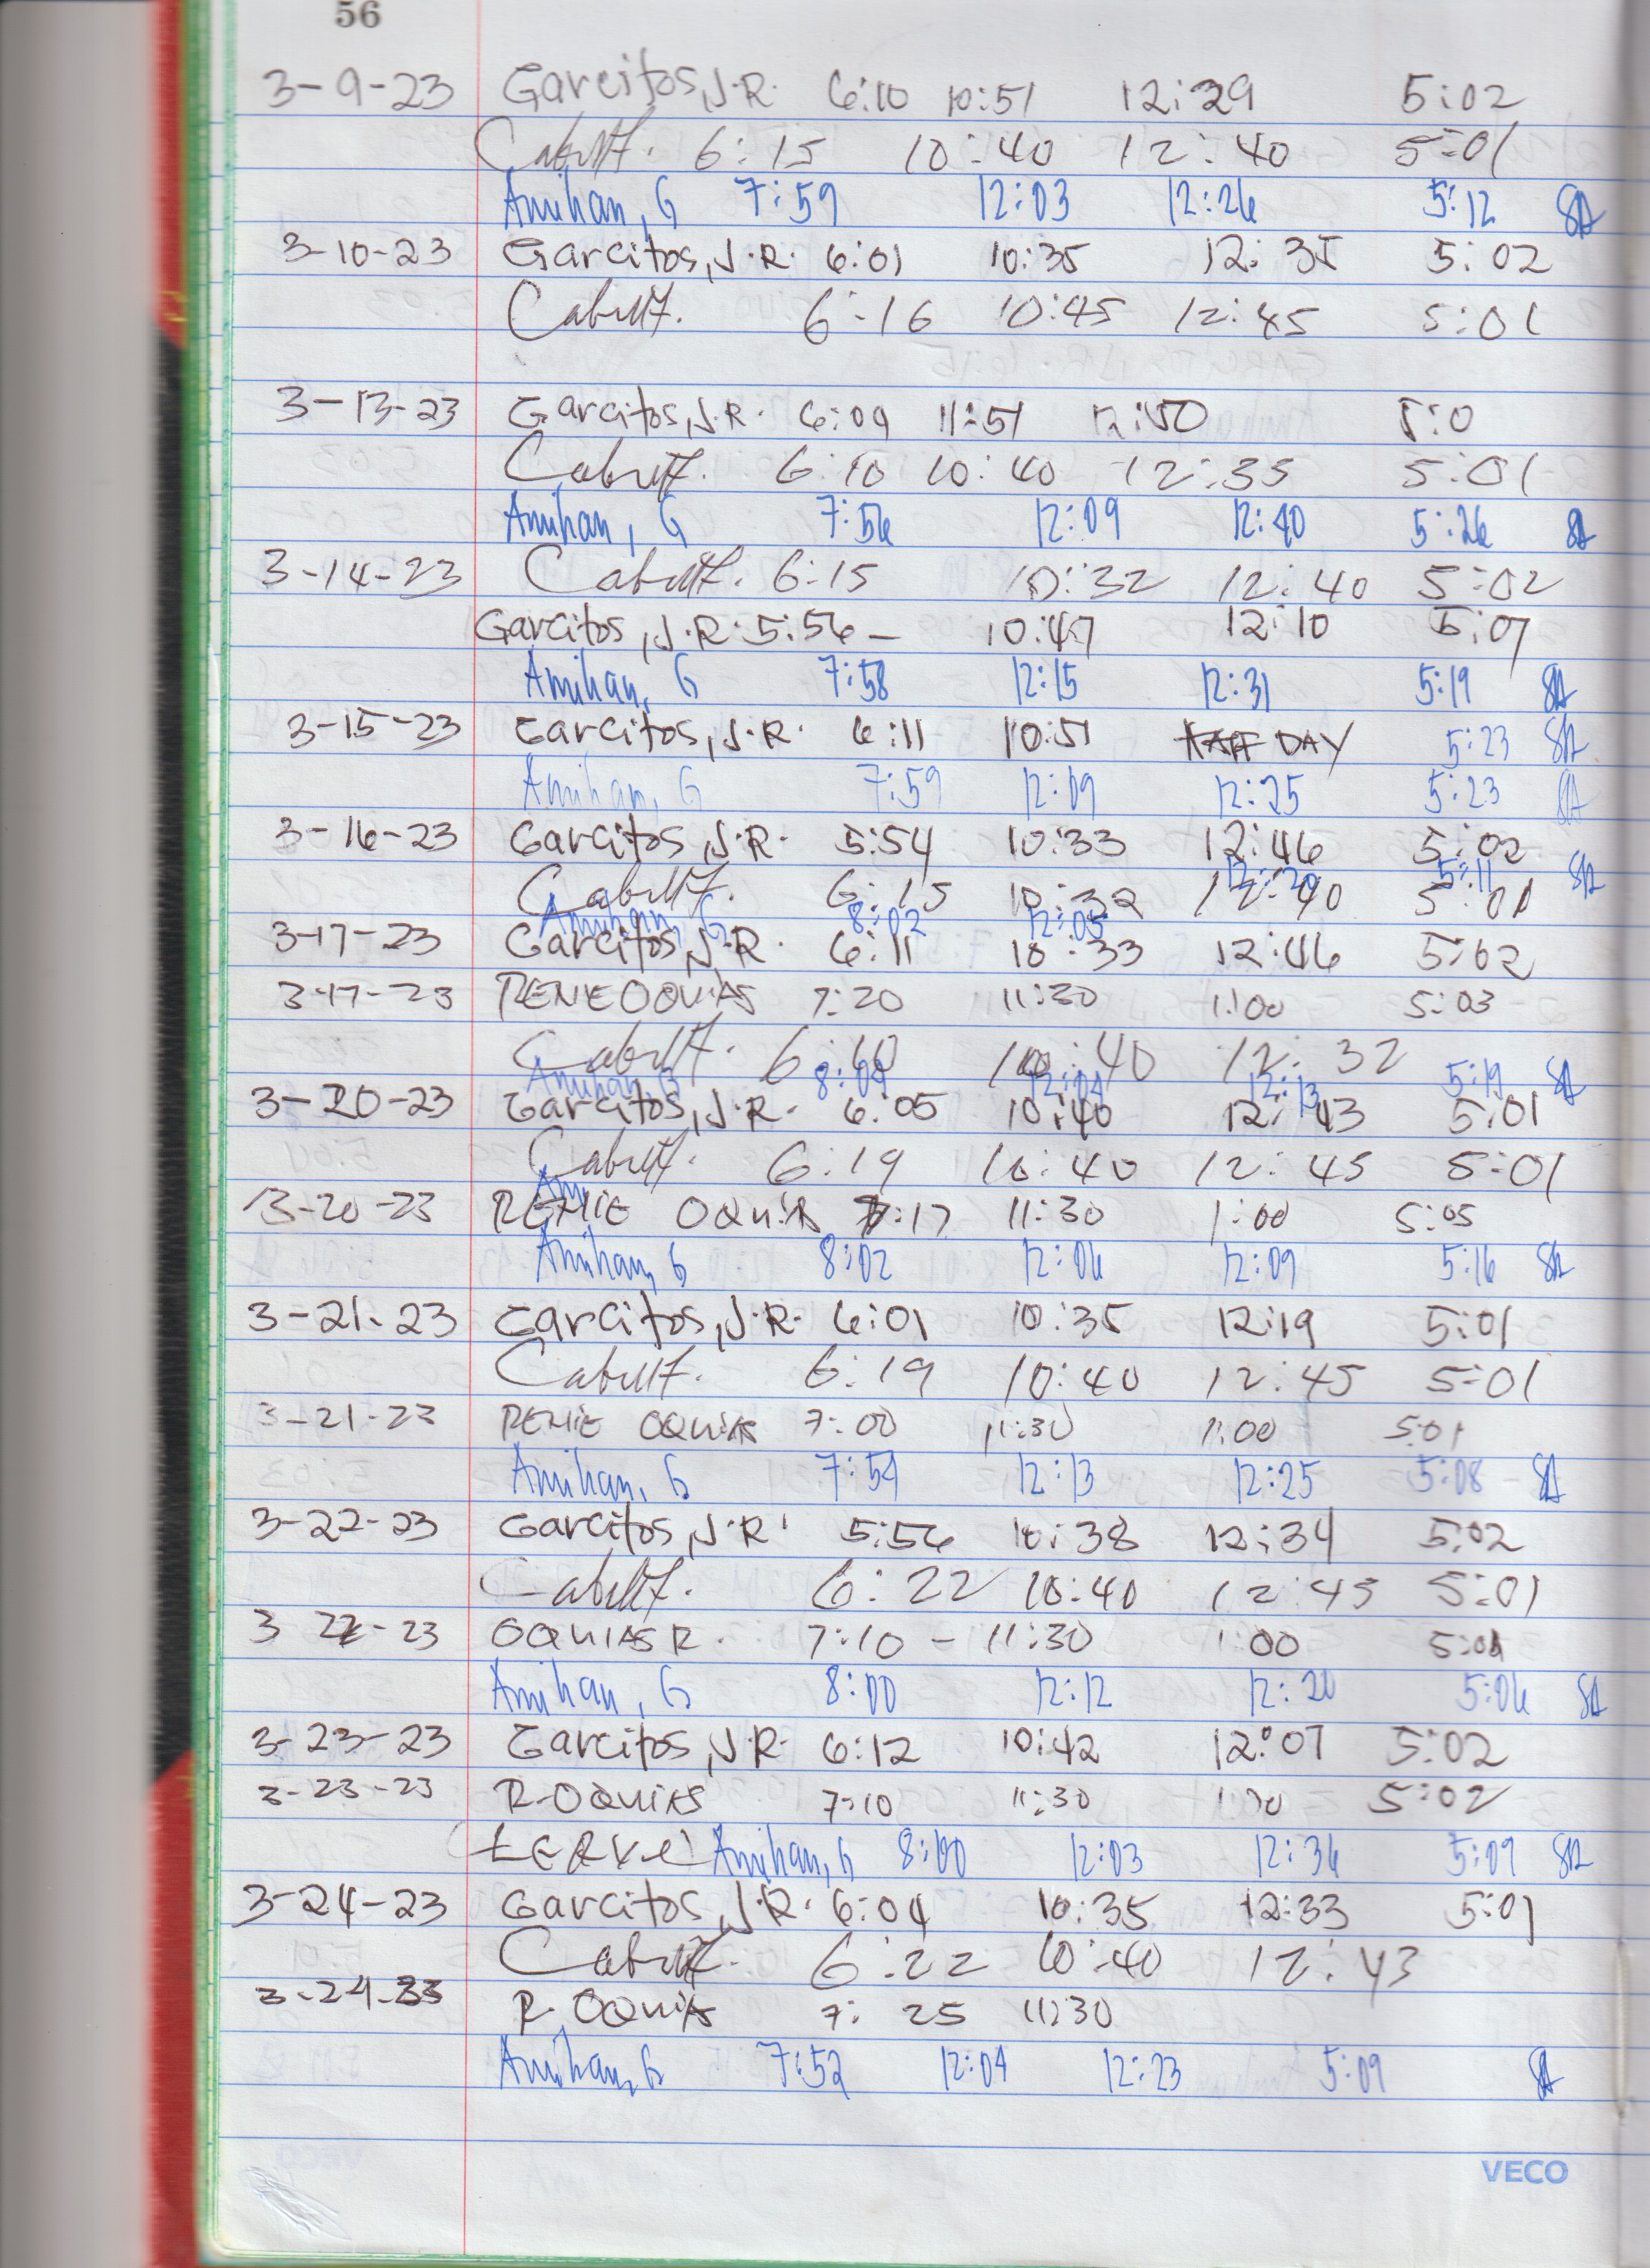 56
3-9-23 Garcitos, J.R. 6:10 10:51 12:29 5:02
6:15 10:40 12:40 5:01
Amihan, G 7:59 12:03 12:26 5:12
3-10-23 Garcitos, J.R. 6:01 10:35 12:35 5:02
6:16 10:45 12:45 5:01
3-13-23 Garcitos, J.R. 6:09 11:51 12:50 5:0
6:10 10:40 12:35 5:01
Amihan, G 7:56 12:09 12:40 5:26
3-14-23 6:15 10:32 12:40 5:02
Garcitos, J.R. 5:56 - 10:47 12:10 5:07
Amihan, G 7:58 12:15 12:31 5:19
3-15-23 Garcitos, J.R. 6:11 10:51 HALF DAY 5:23
Amihan, G 7:59 12:09 12:25 5:23
3-16-23 Garcitos, J.R. 5:54 10:33 12:46 5:02
6:15 10:32 12:40 5:01
Amihan, G 8:02 12:05 12:20 5:11
3-17-23 Garcitos, J.R. 6:11 10:33 12:46 5:02
3-17-23 7:20 11:30 1:00 5:03
6:10 10:40 12:32
Amihan, G 12:04 12:13 5:19
3-20-23 Garcitos, J.R. 6:05 10:40 12:43 5:01
6:19 10:40 12:45 5:01
3-20-23 REMIE OQUIAS 7:17 11:30 1:00 5:05
Amihan, G 8:02 12:06 12:09 5:16
3-21-23 Garcitos, J.R. 6:01 10:35 12:19 5:01
6:19 10:40 12:45 5:01
3-21-23 REMIE OQUIAS 7:00 11:30 1:00 5:01
Amihan, G 7:59 12:13 12:25 5:08
3-22-23 Garcitos, J.R. 5:56 10:38 12:34 5:02
6:22 10:40 12:45 5:01
3 22-23 OQUIAS R. 7:10 - 11:30 1:00
Amihan, G 8:00 12:12 12:20 5:06
3-23-23 Garcitos, J.R. 6:12 10:42 12:07 5:02
3-23-23 R. OQUIAS 7:10 11:30 1:00 5:02
Amihan, G 8:00 12:03 12:36 5:09
3-24-23 Garcitos, J.R. 6:04 10:35 12:33 5:01
6:22 10:40 12:43
3-24-23 R. OQUIAS 7:25 11:30
Amihan, G 7:52 12:04 12:23 5:09
VECO